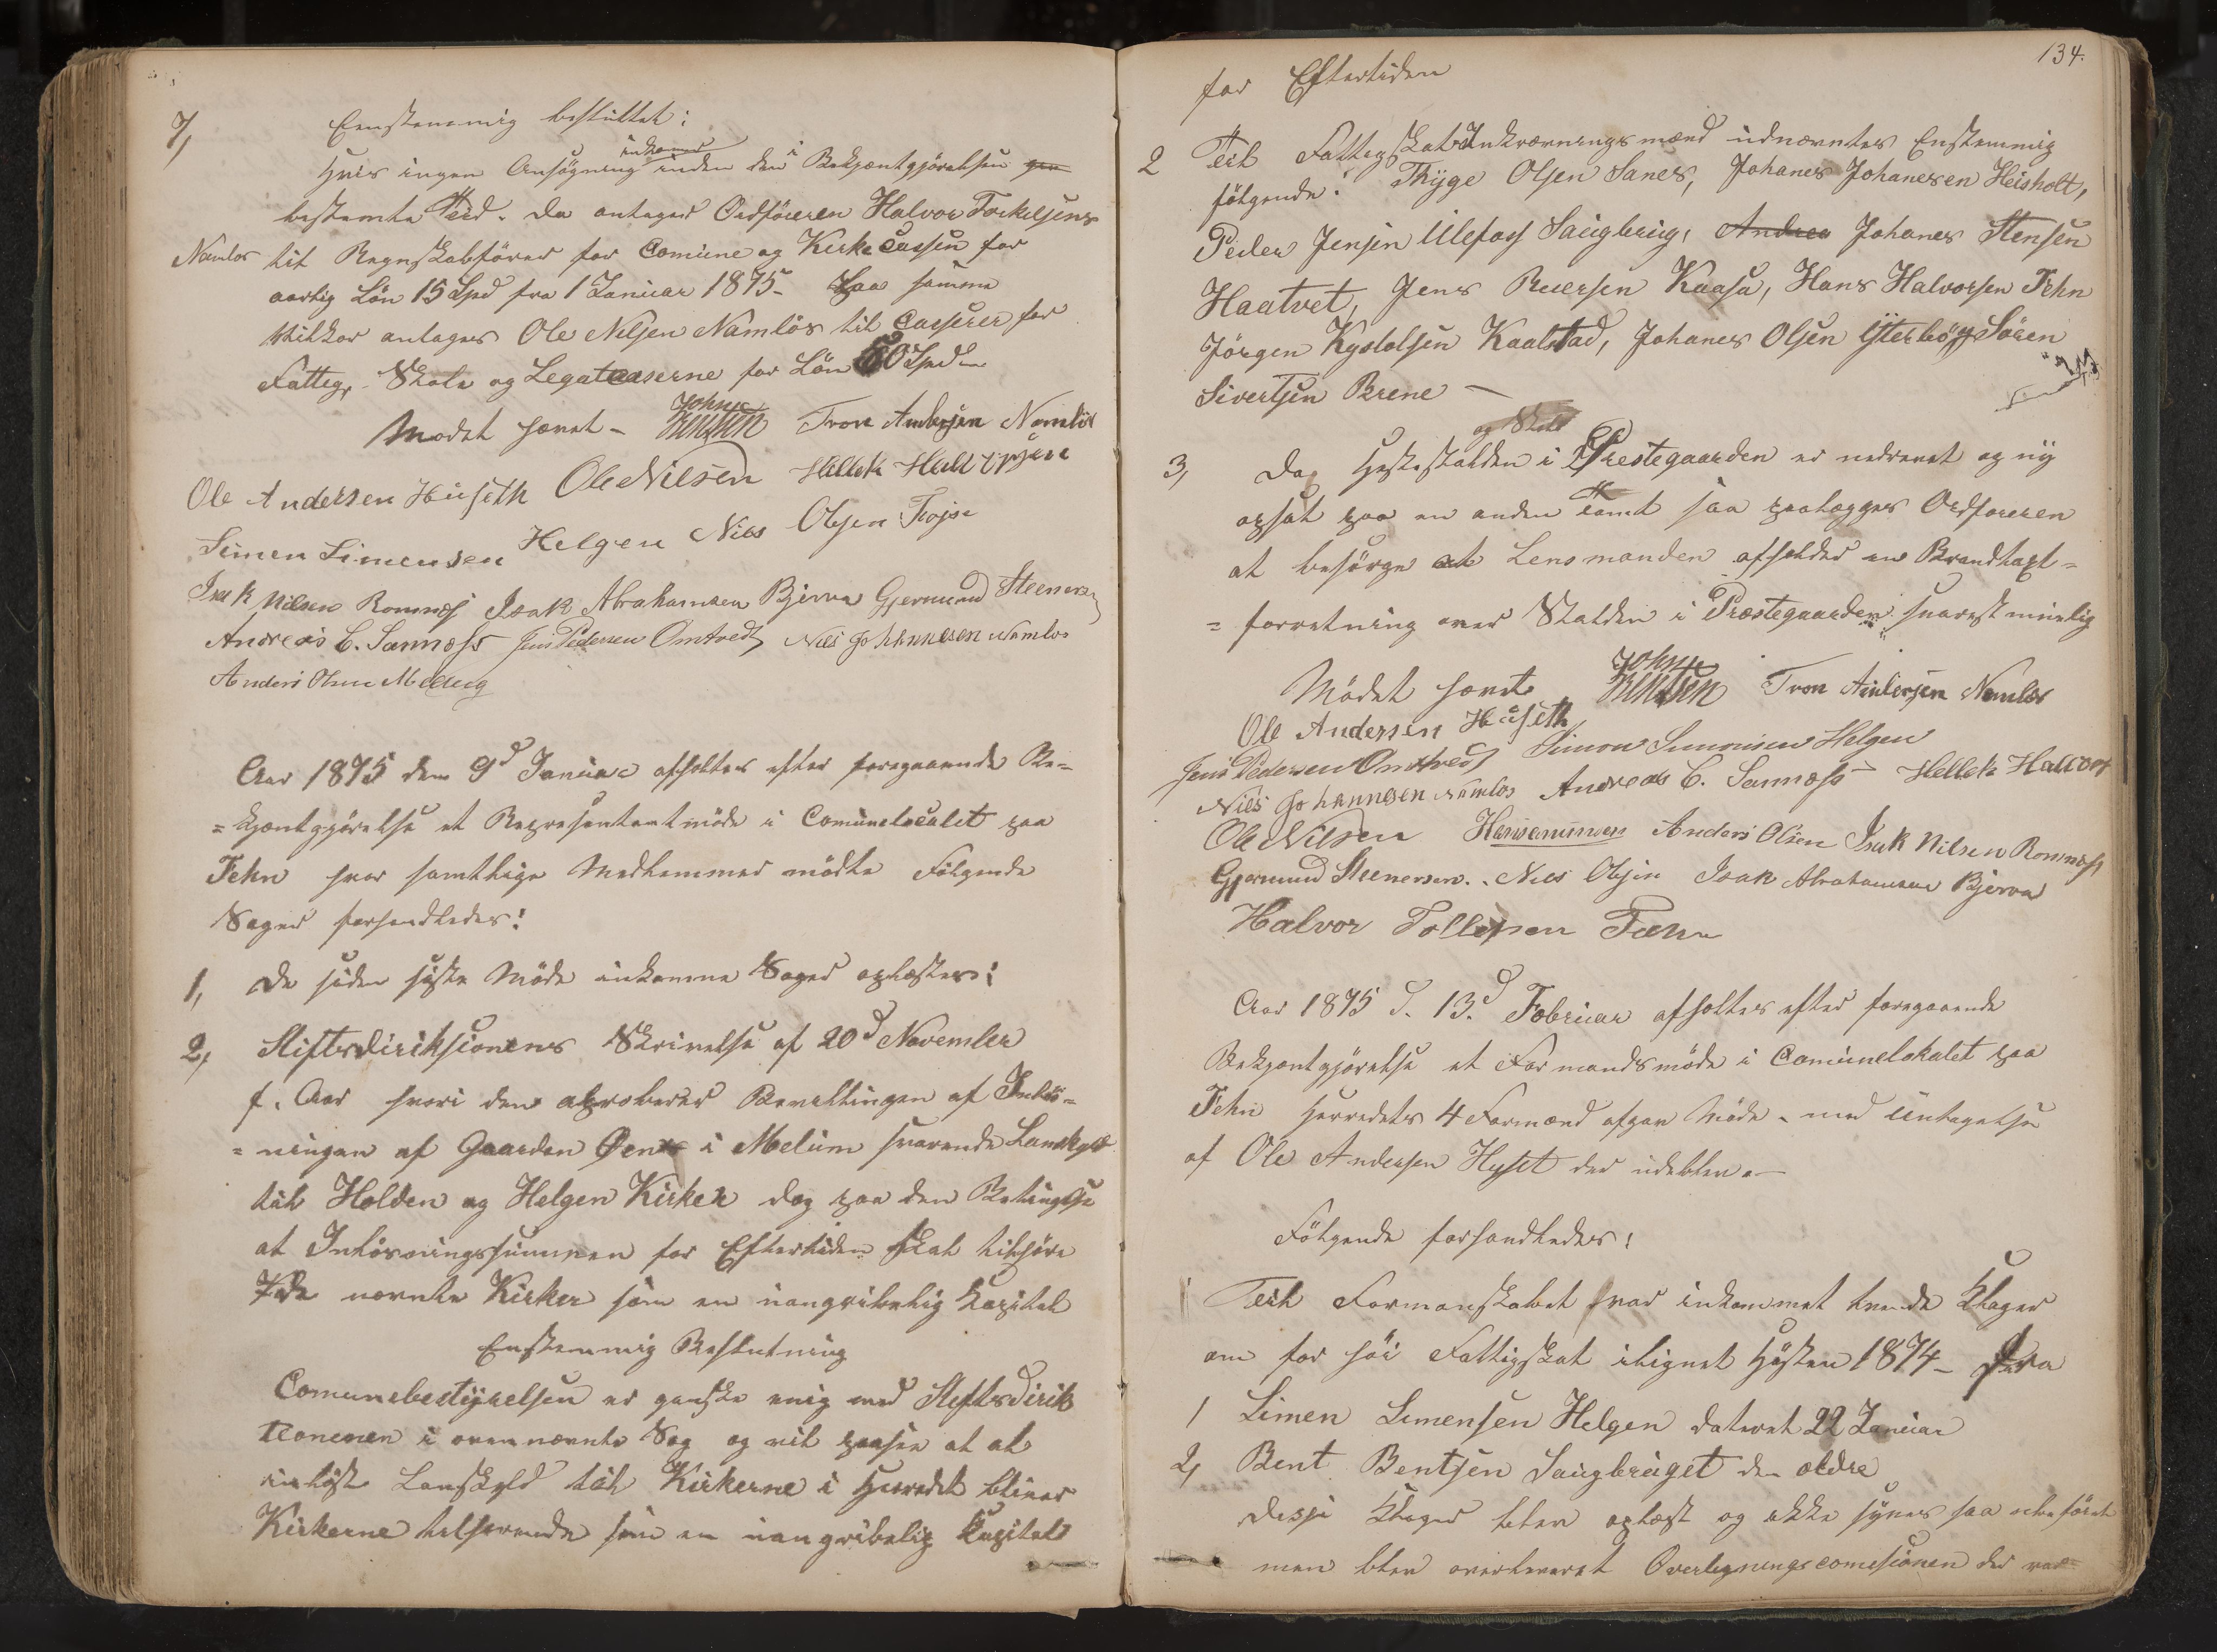 7,
Eenstemmig besluttet:
Hvis ingen Ansögning inkomer inden den i Bekjentgjörelsen gen
bestemte Tiid. da antages Ordföreren Halvor Torkelsens
Namlos til Regnskabförer for Comune og Kirke Cassen for
aarlig Lön 15 Spd fra 1 Januar 1875 – Paa samme
Vilkor antages Ole Nilsen Namlös til Casserer for
Fattig, Skole og Legatcaserne for Lön 60 Spd
Modet hævet – John Bentsen Tron Andersen Namlös
Ole Andersen Húseth Ole Nilsen Hellek Halvorsen
Simen Simensen Helgen Nils Olsen Trojse
Isak Nilsen Romnes Isak Abrahamsen Bjerva Gjermund Steenersen
Andreas C. Sannæss Jens Pedersen Omtvedt Nils Johannesen Namlos
Anders Olsen Melleng
Aar 1875 den 9d Januar afholtes efter foregaaende Be=
=kjentgjörelse et Representantmöde i Comunelocalet paa
Fehn hvor samtlige Medlemmer mödte Fölgende
Sager forhandledes:
1, De siden siste Möde inkomne Sager oplæstes:
2, Stiftsdiriksionens Skrivelse af 20d November
f. Aar hvori den aproberer Bevillingen af Inlös=
=ningen af Gaarden Øens i Melum svarende Landskyld
till Holden og Helgen Kirker dog paa den Betingelse
at Inlösningssummen for Eftertiden skal tilhöre
de nævnte Kirker som en uangribelig Kapital
Enstemmig Beslutning
Comunebestÿrelsen er ganske enig med Stiftsdirik
tionenen i ovennævnte Sag og vil paase at al
inlöst Landskyld till Kirkerne i Herredet bliver
Kirkerne tilhörende som en uangribelig Kapital
134.
for Eftertiden
2 Till Fattigskats Inkrævningsmænd udnævntes Enstemmig
fölgende: Thÿge Olsen Sanes, Johanes Johanesen Heisholt,
Peder Jensen Ulefoss Saugbrug, Andrea Johanes Stensen
Haatvet, Jens Reiersen Kaasa, Hans Halvorsen Fehn
Jörgen Kystolsen Kaalstad, Johanes Olsen Ÿterböe Sören
Sivertsen Brene –
og Skot
3, Da Hestestalden i Prestegaarden er nedrevet og nÿ
opsat paa en anden Tomt saa paalegges Ordföreren
at besörge at Lensmanden afholder en Brandtaxt=
=forretning over Stalden i Præstegaarden snarest muelig
Mödet hævet John Bentsen Tron Andersen Namlös
Ole Andersen Húseth
Jens Pedersen Omtvedt Simon Simonsen Helgen
Nils Johannesen Namlos Andreas C. Sannæss Hellek Halvors
Ole Nilsen Anders Olsen Isak Nilsen Romnes
Gjermund Steenersen. Nils Olsen Isak Abrahamsen Bjerva
Halvor Tollefsen Fæhn
Aar 1875 d. 13.d Februar afholtes efter foregaaende
Bekjentgjörelse et Formandsmöde i Comunelokalet paa
Fehn Herredets 4 Formænd afgav Möde – med Untagelse
af Ole Andersen Hÿset der udeblev –
Fölgende forhandledes:
1 Till Formanskabet var inkommet tvende Klager
om for höi Fattigskat ilignet Hösten 1874 – fra
1 Simen Simensen Helgen dateret 22 Januar
2, Bent Bentsen Saugbruget den ældre
Disse Klager blev oplæst og ikke synes saa
men blev overleveret Overligningscomisionen der ved=